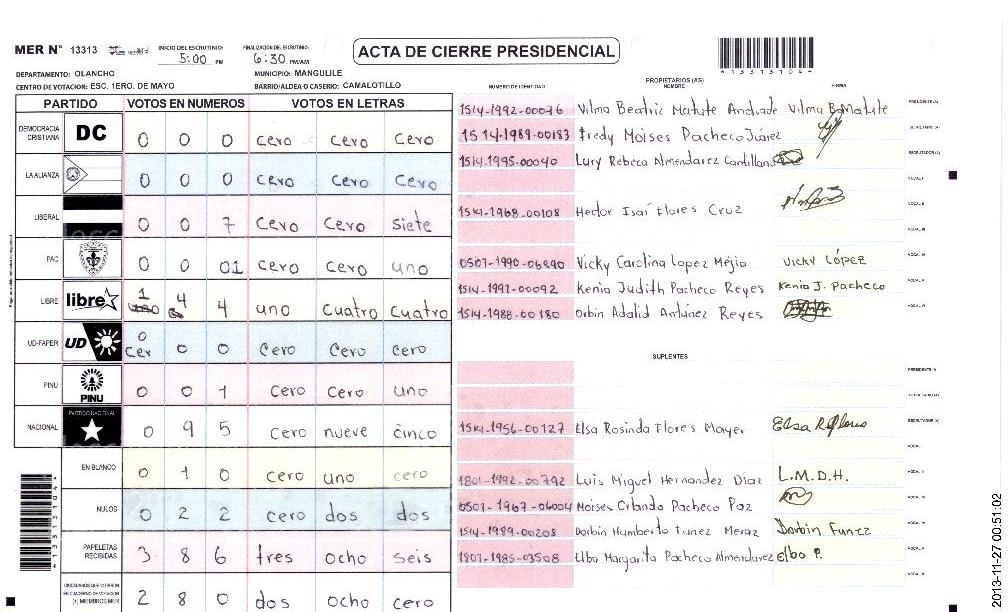 MER N° 13313 INICIO DEL ESCRUTINIO: 5:00 PM FINALIZACION DEL ESCRUTINIO: 6:30 PM/AM ACTA DE CIERRE PRESIDENCIAL
DEPARTAMENTO: OLANCHO MUNICIPIO: MANGULILE
CENTRO DE VOTACION: ESC. 1ERO. DE MAYO BARRIO/ALDEA O CASERIO: CAMALOTILLO
PARTIDO VOTOS EN NUMEROS VOTOS EN LETRAS
DEMOCRACIA CRISTIANA DC 0 0 0 cero cero cero
LA ALIANZA 0 0 0 cero cero cero
LIBERAL 0 0 7 cero cero siete
PAC 0 0 01 cero cero uno
LIBRE libre 1 4 4 uno cuatro cuatro
UD-FAPER UD 0 cer 0 0 cero cero cero
PINU PINU 0 0 1 cero cero uno
NACIONAL PARTIDO NACIONAL 0 9 5 cero nueve cinco
EN BLANCO 0 1 0 cero uno cero
NULOS 0 2 2 cero dos dos
PAPELETAS RECIBIDAS 3 8 6 tres ocho seis
CIUDADANOS QUE VOTARON EN CUADERNO DE VOTACION (+) MIEMBROS MER 2 8 0 dos ocho cero
NUMERO DE IDENTIDAD PROPIETARIOS (AS) NOMBRE FIRMA
1514-1992-00076 Vilma Beatriz Matute Andrade Vilma B. Matute PRESIDENTE(A)
1514-1989-00183 Fredy Moises Pacheco Juárez SECRETARIO (A)
1514-1995-00040 Lury Rebeca Almendarez Cantillano ESCRUTADOR (A)
VOCAL I
1514-1968-00108 Hector Isaí Flores Cruz VOCAL II
VOCAL III
0501-1990-06690 Vicky Carolina Lopez Mejia VICKY LÓPEZ VOCAL IV
1514-1992-00092 Kenia Judith Pacheco Reyes Kenia J. Pacheco VOCAL V
1514-1988-00180 Orbin Adalid Antúnez Reyes VOCAL VI
SUPLENTES
PRESIDENTE (A)
SECRETARIO (A)
1514-1956-00127 Elsa Rosinda Flores Mayer Elsa R Flores ESCRUTADOR (A)
VOCAL I
1801-1992-00792 Luis Miguel Hernandez Díaz L.M.D.H. VOCAL II
0501-1967-06004 Moises Orlando Pacheco Paz
1514-1989-00208 Dorbin Humberto Funez Meraz Dorbin Funez VOCAL IV
1807-1985-03508 Elba Margarita Pacheco Almendarez Elba P. VOCAL V
2013-11-27 00:51:02